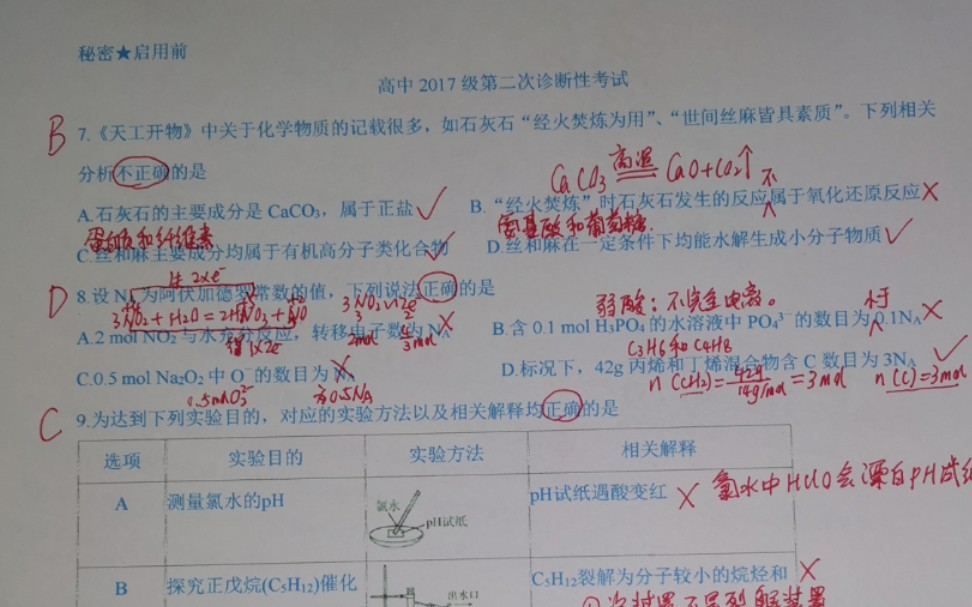 秘密★启用前
高中 2017 级第二次诊断性考试
B 7.《天工开物》中关于化学物质的记载很多，如石灰石“经火焚炼为用”、“世间丝麻皆具素质”。下列相关
分析不正确的是
CaCO3 高温 CaO+CO2↑ 不
A.石灰石的主要成分是 CaCO₃，属于正盐 ✓ B.“经火焚炼”时石灰石发生的反应属于氧化还原反应 ✗
蛋白质和纤维素 氨基酸和葡萄糖.
C.丝和麻主要成分均属于有机高分子类化合物 ✓ D.丝和麻在一定条件下均能水解生成小分子物质 ✓
失2×e⁻
D 8.设 NA 为阿伏加德罗常数的值，下列说法正确的是
3NO2+H2O=2HNO3+NO 3NO2~2e⁻ 弱酸：不完全电离。 小于
A.2 mol NO₂ 与水充分反应，转移电子数为 NA ✗ B.含 0.1 mol H₃PO₄ 的水溶液中 PO₄³⁻ 的数目为 0.1NA ✗
得1×2e⁻ 2mol 4/3mol C3H6和C4H8
C.0.5 mol Na₂O₂ 中 O⁻的数目为 NA D.标况下，42g 丙烯和丁烯混合物含 C 数目为 3NA ✓
为0.5NA n(CH2)=42g/14g/mol=3mol n(C)=3mol
C 9.为达到下列实验目的，对应的实验方法以及相关解释均正确的是
选项 实验目的 实验方法 相关解释
A 测量氯水的pH 氯水 pH试纸 pH试纸遇酸变红 ✗ 氯水中HClO会漂白pH试纸
B 探究正戊烷(C₅H₁₂)催化 出水口 C₅H₁₂裂解为分子较小的烷烃和 ✗